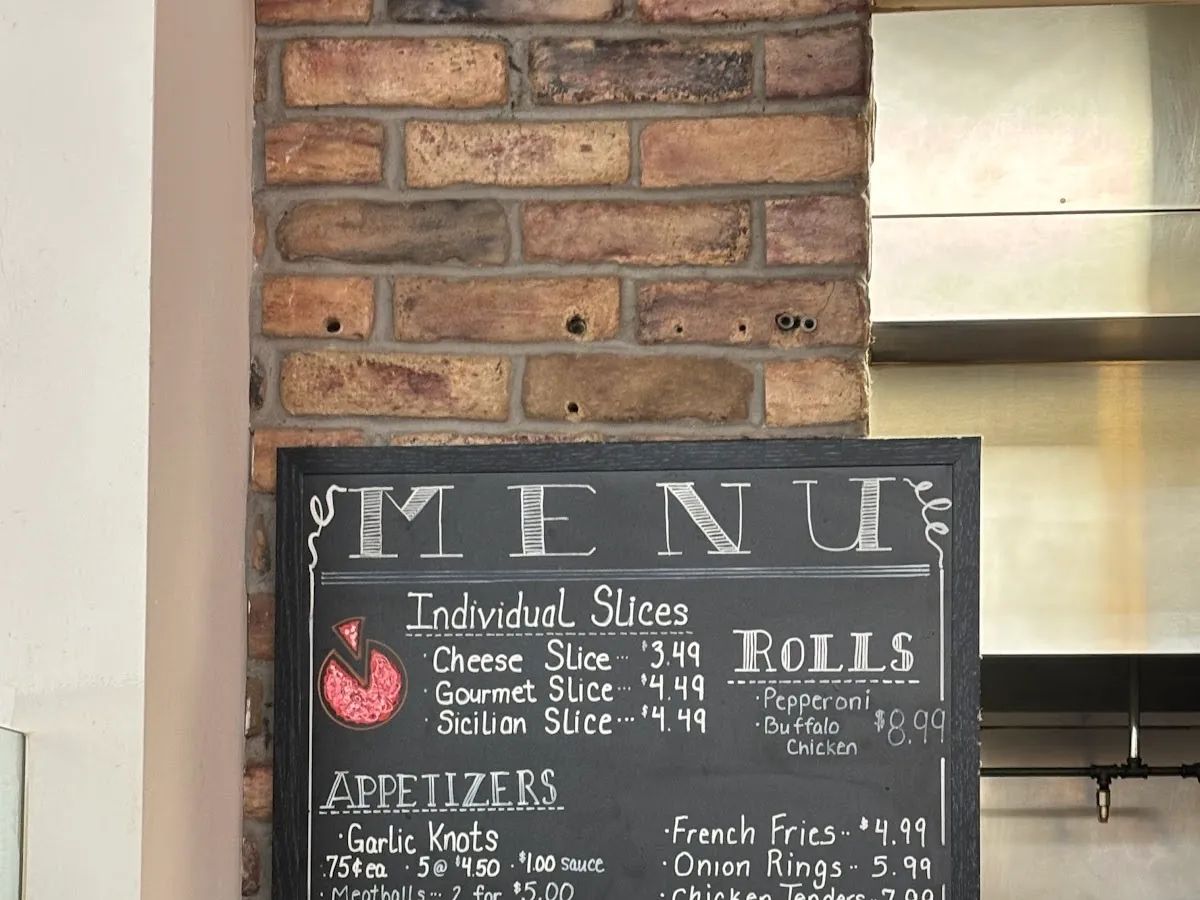 MENU
Individual Slices
· Cheese Slice ·· $3.49
· Gourmet Slice ·· $4.49
· Sicilian Slice ··· $4.49
ROLLS
· Pepperoni
· Buffalo Chicken $8.99
APPETIZERS
· Garlic Knots
.75¢ ea · 5@ $4.50 · $1.00 sauce
· Meatballs ··· 2 for $5.00
· French Fries ·· $4.99
· Onion Rings ·· 5.99
· Chicken Tenders ·· 7.99